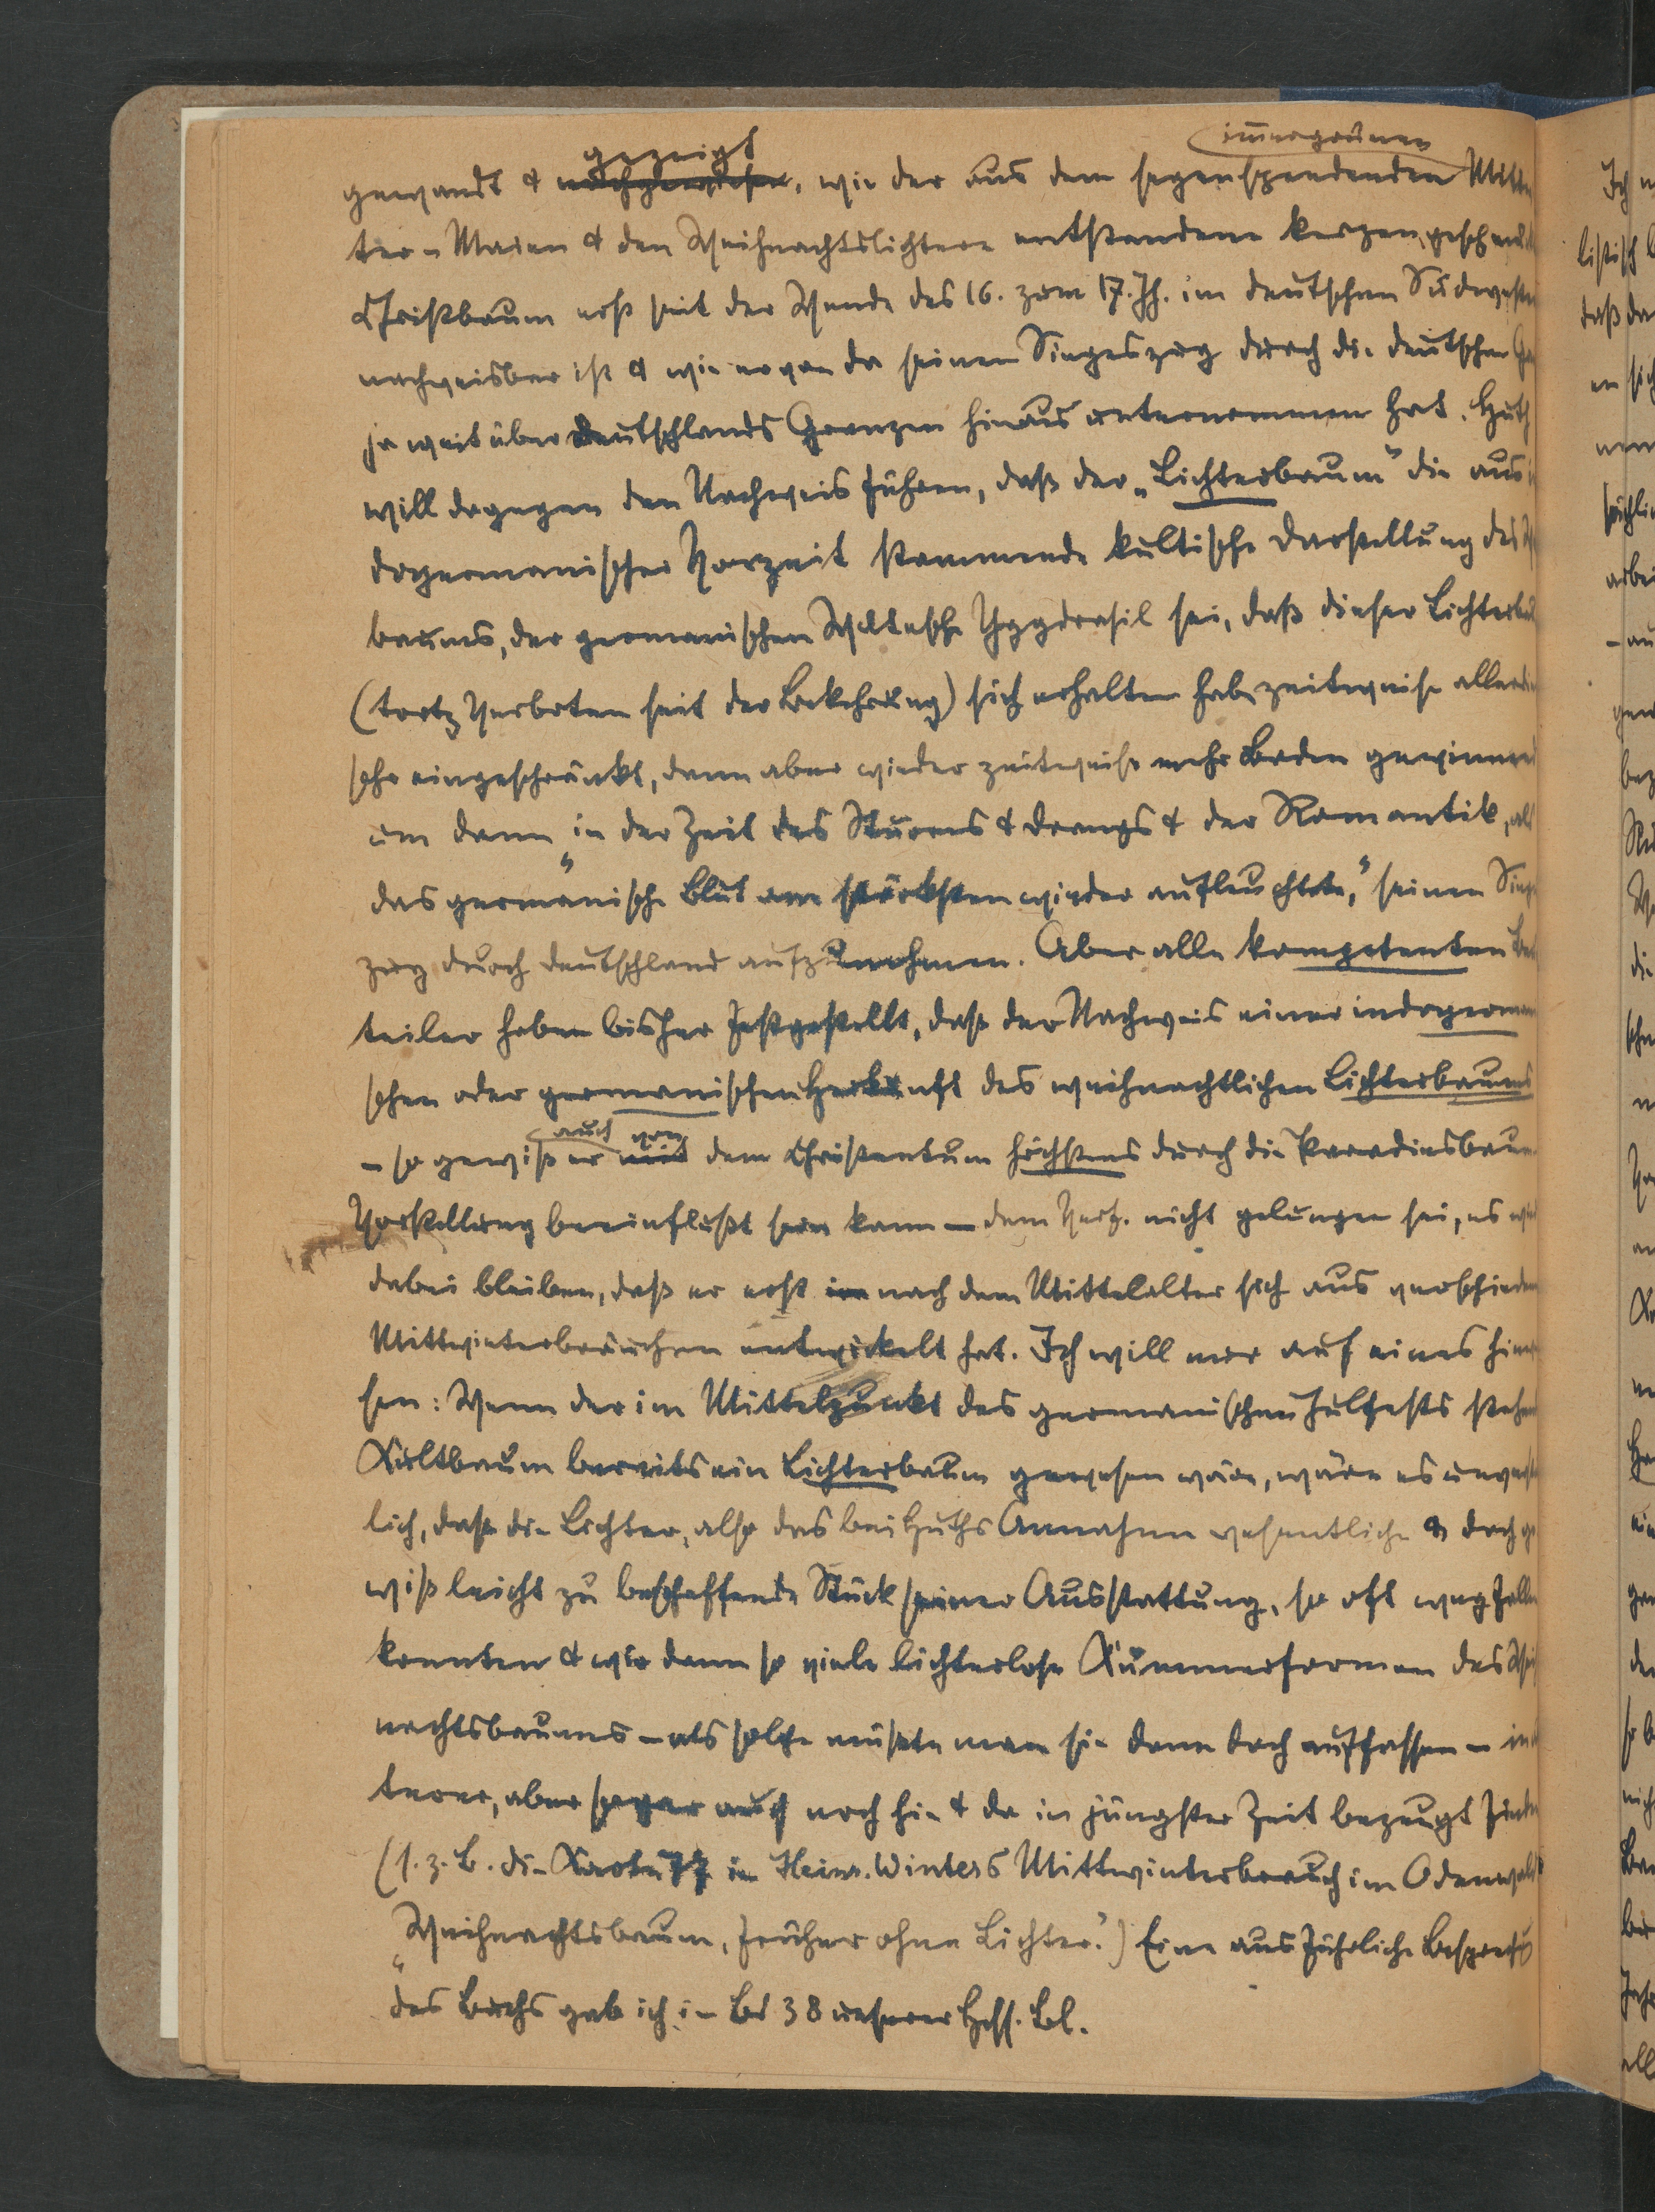 gezeigt immergrünen
gewandt & nachgewiesen, wie der aus dem segenspendenden Mittwin
ter-Maien & den Weihnachtslichtern entstandene kerzengeschmückte
Christbaum erst seit der Wende des 16. zum 17. Jh. im deutschen Südwesten
nachweisbar ist & wie er von da seinen Siegeszug durch die deutschen Gaue
ja weit über Deutschlands Grenzen hinaus unternommen hat. Huth
will dagegen den Nachweis führen, daß der „Lichterbaum" die aus in
dogermanischer Vorzeit stammende kultische Darstellung des Welt
baums, der germanischen Weltesche Yggdrasil sei, daß dieser Lichterbaum
(trotz Verboten seit der Bekehrung) sich erhalten habe, zeitweise allerdings
sehr eingeschränkt, dann aber wieder zeitweise mehr Boden gewinnend
um dann „in der Zeit des Sturms & Drangs & der Romantik, als
das germanische Blut am stärksten wieder aufleuchtete," seinen Sieges
zug durch Deutschland aufzunehmen. Aber alle kompetenten Beur
teiler haben bisher festgestellt, daß der Nachweis einer indogermani
schen oder germanischen Herkunft des weihnachtlichen Lichterbaums
auch von
– so gewiß er mit dem Christentum höchstens durch die Paradiesbaum
Vorstellung beeinflußt sein kann – dem Verf. nicht gelungen sei, es wird
dabei bleiben, daß er erst im nach dem Mittelalter sich aus verschiedenen
Mittwinterbräuchen entwickelt hat. Ich will nur auf eines hinwei
sen: Wenn der im Mittelpunkt des germanischen Julfests stehende
Kultbaum bereits ein Lichterbaum gewesen wäre, wäre es unverständ
lich, daß die Lichter, also das bei Huths Annahme wesentliche & doch ge
wiß leicht zu beschaffende Stück seiner Ausstattung, so oft wegfallen
konnten & wir dann so viele lichterlose Kümmerformen des Weih
nachtsbaums – als solche müßte man sie dann doch auffassen – in äl
terer, aber sogar auch noch hie & da in jüngster Zeit bezeugt finden
(s. z. B. die Karte 77 in Heinr. Winters Mittwinterbrauch im Odenwald:
„Weihnachtsbaum, früher ohne Lichter.") Eine ausführliche Besprechung
des Buchs gab ich in Bd 38 unserer Hess. Bl.